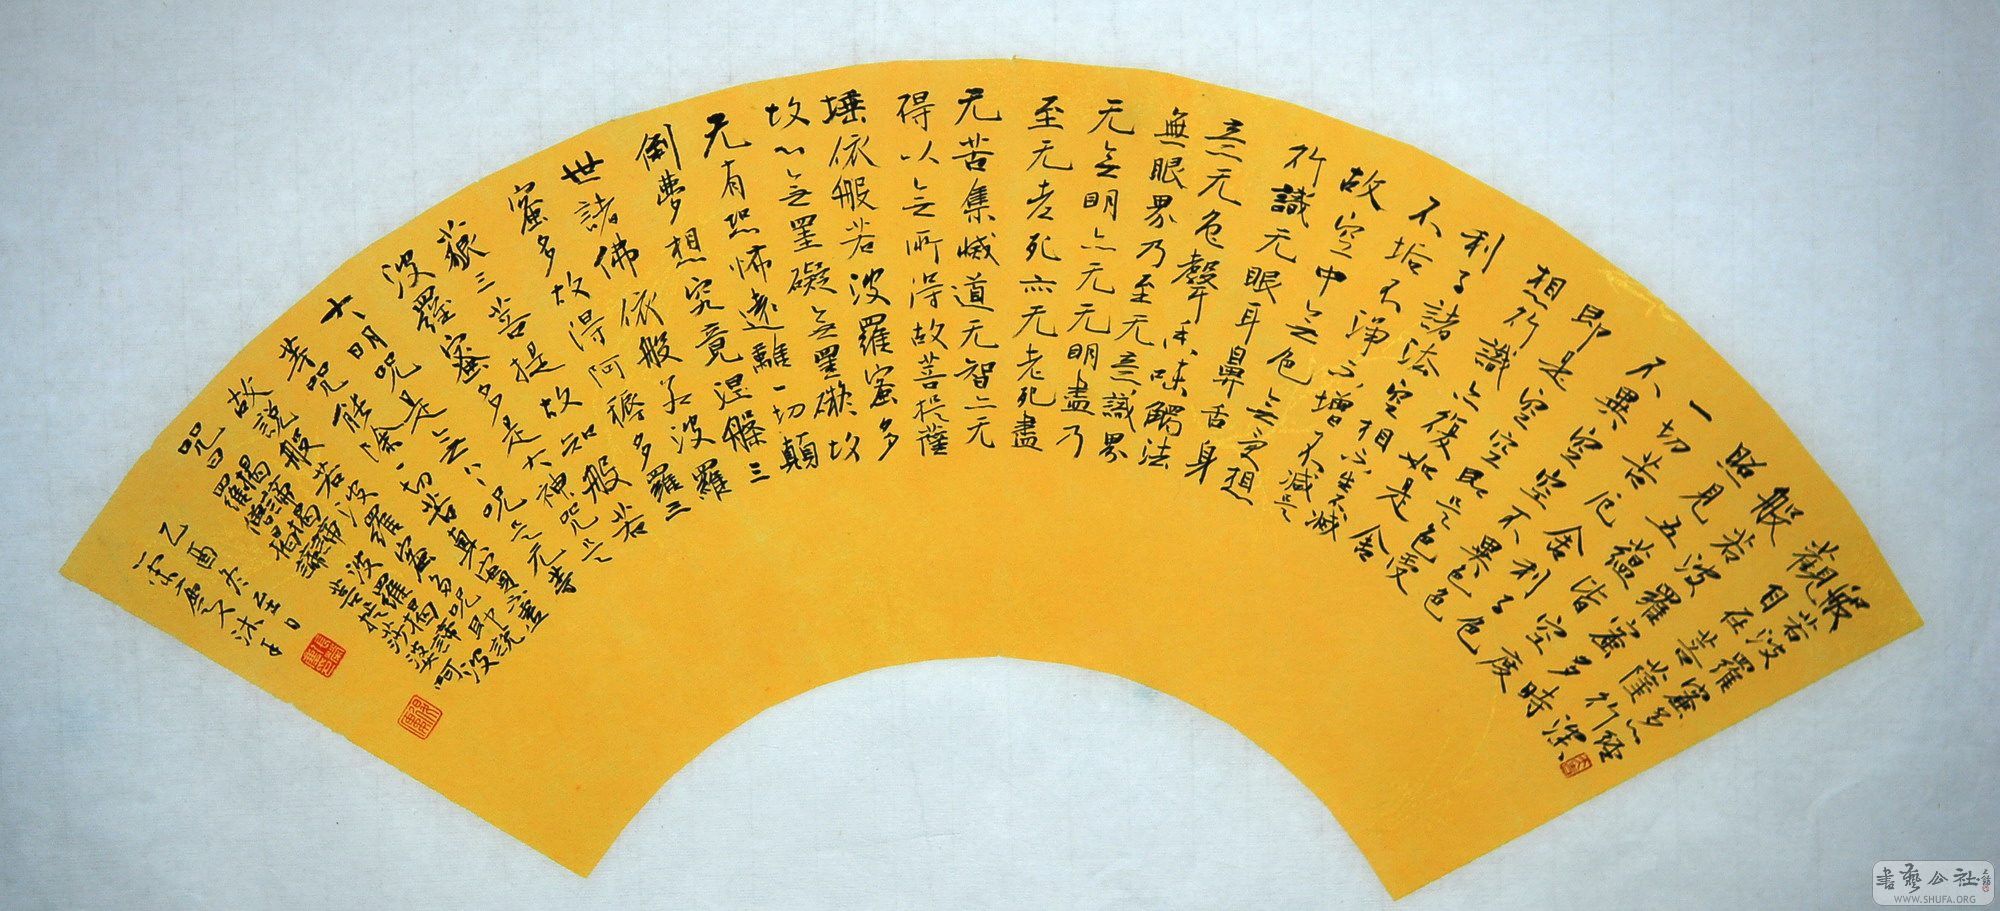 般若波羅蜜多心經
觀自在菩薩行深
般若波羅蜜多時
照見五蘊皆空度
一切苦厄舍利子色
不異空空不異色色
即是空空即是色受
想行識亦復如是舍
利子諸法空相不生不滅
不垢不淨不增不減是
故空中無色無受想
行識无眼耳鼻舌身
意无色聲香味觸法
無眼界乃至无意識界
无無明亦无无明盡乃
至无老死亦无老死盡
无苦集滅道无智亦无
得以無所得故菩提薩
埵依般若波羅蜜多
故心無罣礙無罣礙故
无有恐怖遠離一切顛
倒夢想究竟涅槃三
世諸佛依般若波羅
蜜多故得阿耨多羅三
藐三菩提故知般若
波羅蜜多是大神咒是
大明咒是無上咒是无等
等咒能除一切苦真實不虛
故說般若波羅蜜多咒即說
咒曰揭諦揭諦波羅揭諦波
羅僧揭諦菩提莎婆呵
乙酉冬至日
沐手
書藝公社
WWW.SHUFA.ORG